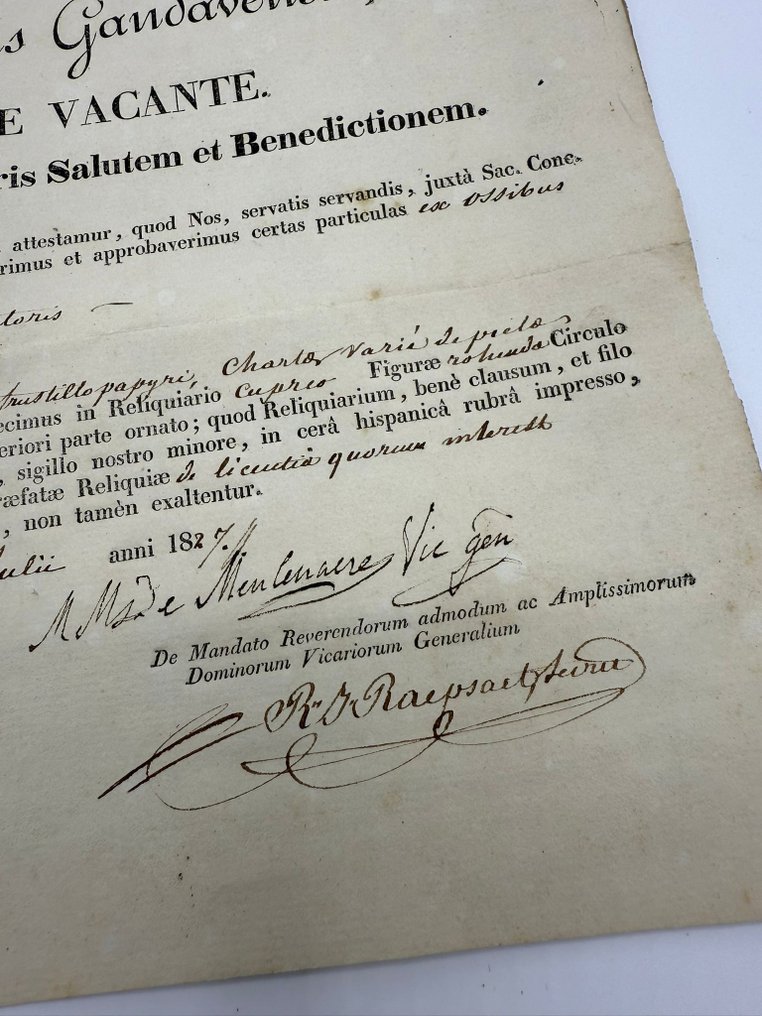 s Gandavens
E VACANTE.
ris Salutem et Benedictionem.
attestamur, quod Nos, servatis servandis, juxtà Sac. Conc.
rimus et approbaverimus certas particulas ex ossibus
toris
frustillo papyri, Chartâ variè depictâ
ecimus in Reliquiario cupreo Figuræ rotunda Circulo
eriori parte ornato; quod Reliquiarium, benè clausum, et filo
, sigillo nostro minore, in cerâ hispanicâ rubrâ impresso,
ræfatæ Reliquiæ de licentiâ quorum interest
, non tamèn exaltentur.
ulii anni 1827
De Meulenaere Vic gen
De Mandato Reverendorum admodum ac Amplissimorum
Dominorum Vicariorum Generalium
R. J. Raepsaet